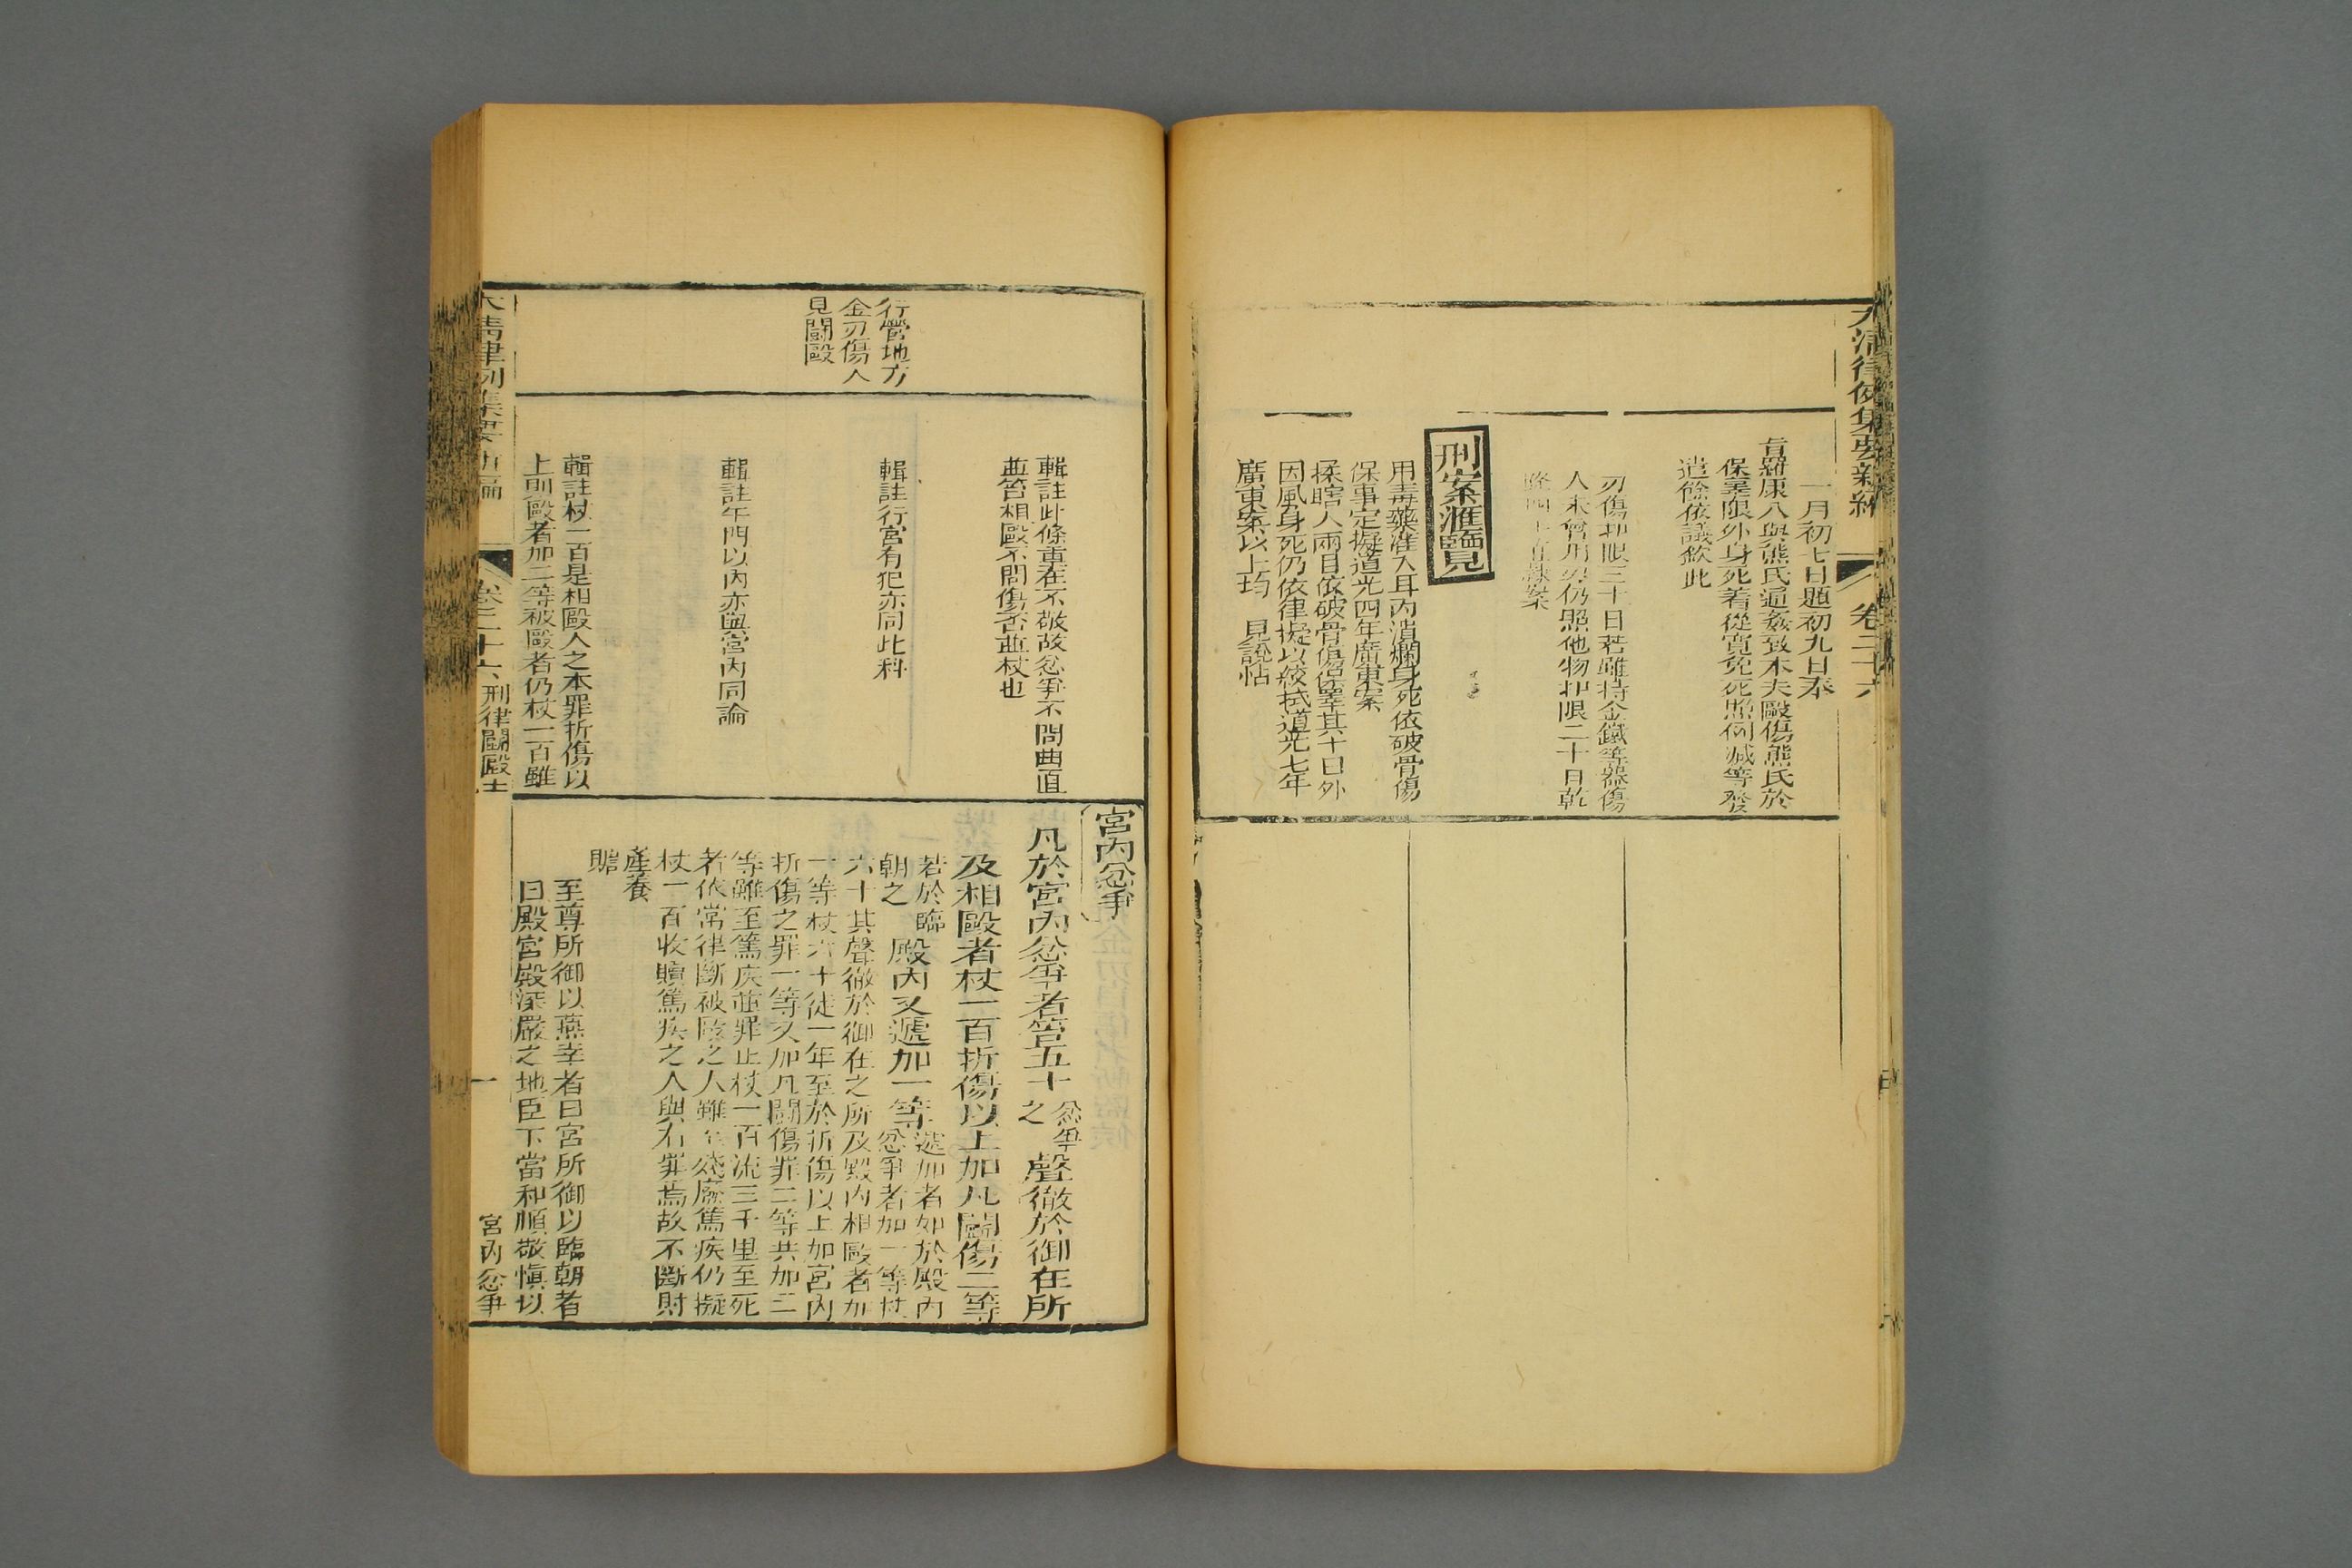 大清律例集要新編
卷二十六
一月初七日題初九日奉
旨羅康八與熊氏通姦致本夫毆傷熊氏於
保辜限外身死着從寬免死照例減等發
遣餘依議欽此
刃傷扣限三十日若雖持金鐵等器傷
人未曾用刃仍照他物扣限二十日乾
隆四十
刑案滙覽見
用毒藥灌入耳內潰爛身死依破骨傷
保辜定擬道光四年廣東案
揉瞎人兩目依破骨傷保辜其十日外
因風身死仍依律擬以絞抵道光七年
廣東案以上均 見說帖
行營地方
金刃傷人
見鬬毆
輯註此條重在不敬故忿爭不問曲直
並笞相毆不問傷否並杖也
輯註行宮有犯亦同此科
輯註午門以內亦與宮內同論
輯註杖一百是相毆人之本罪折傷以
上則毆者加二等被毆者仍杖一百雖
宮內忿爭
凡於宮內忿爭者笞五十忿爭之聲徹於御在所
及相毆者杖一百折傷以上加凡鬬傷二等
若於臨朝之殿內又遞加一等遞加者如於殿內忿爭者加一等杖
六十其聲徹於御在之所及殿內相毆者加
一等杖六十徒一年至於折傷以上加宮內
折傷之罪一等又加凡鬬傷罪二等共加三
等雖至篤疾並罪止杖一百流三千里至死
者依常律斷被毆之人雖至殘廢篤疾仍擬
杖一百收贖篤疾之人與有罪焉故不斷財
產養
贍
至尊所御以燕幸者曰宮所御以臨朝者
曰殿宮殿深嚴之地臣下當和順敬慎以
大清律例集要新編
卷二十六 刑律鬬毆上
一
宮內忿爭